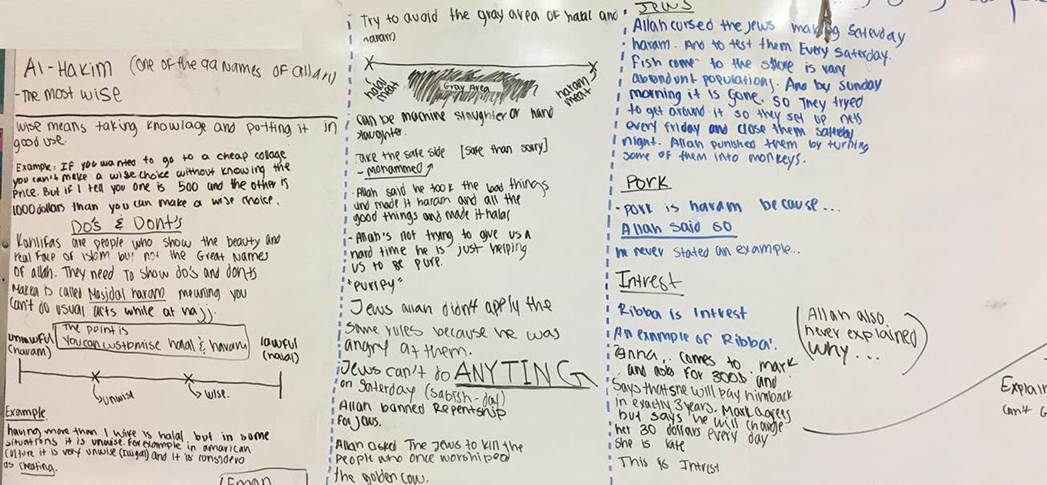 Al-Hakim (one of the 99 Names of Allah)
- The most wise
wise means taking knowlage and putting it in
good use.
Example: If you wanted to go to a cheap collage
you can't make a wise choice without knowing the
price. But if I tell you one is 500 and the other is
1000 dollars than you can make a wise choice.
Do's & Dont's
Kahlifas are people who show the beauty and
real face of islam but not the Great Names
of allah. They need to show do's and donts
Makka is called Masjidal haram meaning you
can't do usual acts while at hajj.
The point is
You can customise halal & haram
unlawful
(haram)
lawful
(halal)
unwise
wise.
Example
having more than 1 wife is halal but in some
situations it is unwise. For example in amarican
culture it is very unwise (illigal) and it is considerd
as cheating.
Eman
Try to avoid the gray area of halal and
haram
halal
meat
Gray Area
haram
meat
can be machine slaughter or hand
slaughter.
Take the safe side [safe than sorry]
- mohammed
- Allah said he took the bad things
and made it haram and all the
good things and made it halal
- Allah's not trying to give us a
hard time he is just helping
us to be pure.
"purley"
Jews allah didn't apply the
same rules because he was
angry at them.
Jews can't do ANYTING
on Saterday (Sabish-day)
Allah banned Repentship
for Jews.
Allah asked The Jews to kill the
people who once worshiped
the golden cow.
JEWS
Allah cursed the jews making Saterday
haram. And to test them Every Saterday.
Fish come to the shore is vary
abtendunt populations. And by sunday
morning it is gone. So They tryed
to get around it so they set up nets
every friday and close them saterday
night. Allah punished them by turning
some of them into monkeys.
Pork
- pork is haram because...
Allah said so
he never stated an example...
Intrest
Ribba is Intrest
An exmample of Ribba:
Anna, comes to mark
and asks for 300$ and
says that she will pay him back
in exactly 3 years. Mark agrees
but says he will charge
her 30 dollars every day
she is late
This is Intrest
Allah also
never explained
why...
Explain
can't